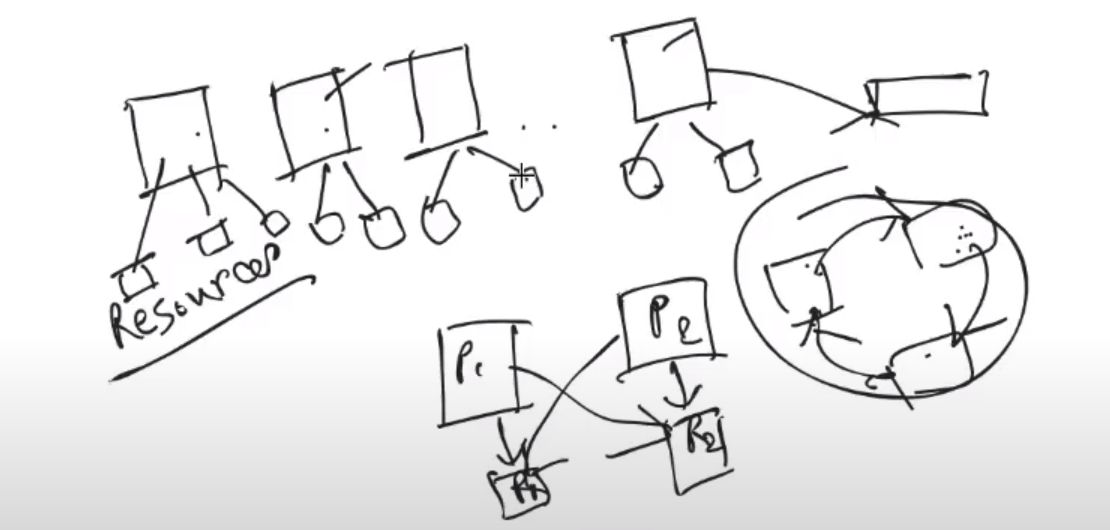 Resources
P1
P2
R1
R2